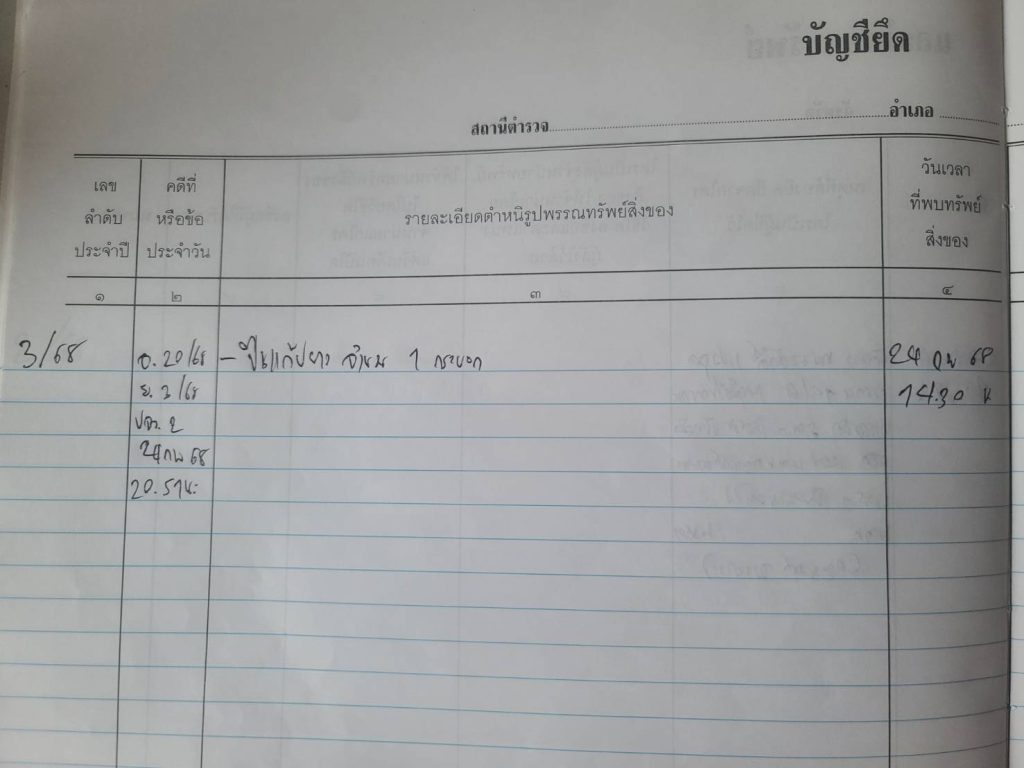 บัญชียึด
สถานีตำรวจ อำเภอ
เลข
ลำดับ
ประจำปี
คดีที่
หรือข้อ
ประจำวัน
รายละเอียดตำหนิรูปพรรณทรัพย์สิ่งของ
วันเวลา
ที่พบทรัพย์
สิ่งของ
๑ ๒ ๓ ๔
3/68 อ. 20/68 - ปืนแก๊ปยาว จำนวน 1 กระบอก 24 กพ 68
ย. 3/68 14.30 น
ปจว. 2
24 กพ 68